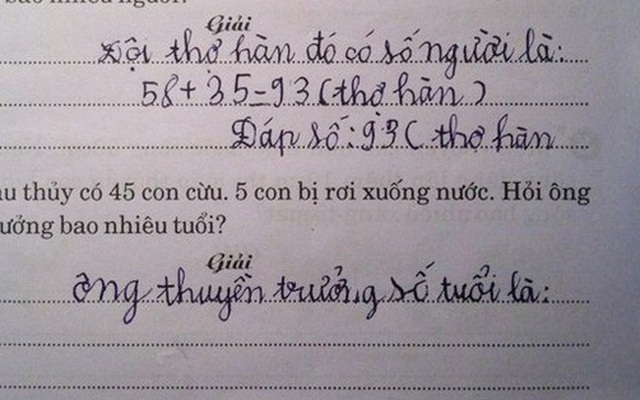 bao nhiêu người?
Giải
Đội thợ hàn đó có số người là:
58 + 35 = 93 (thợ hàn)
Đáp số: 93 ( thợ hàn
àu thủy có 45 con cừu. 5 con bị rơi xuống nước. Hỏi ông
ưởng bao nhiêu tuổi?
Giải
ông thuyền trưởng số tuổi là: